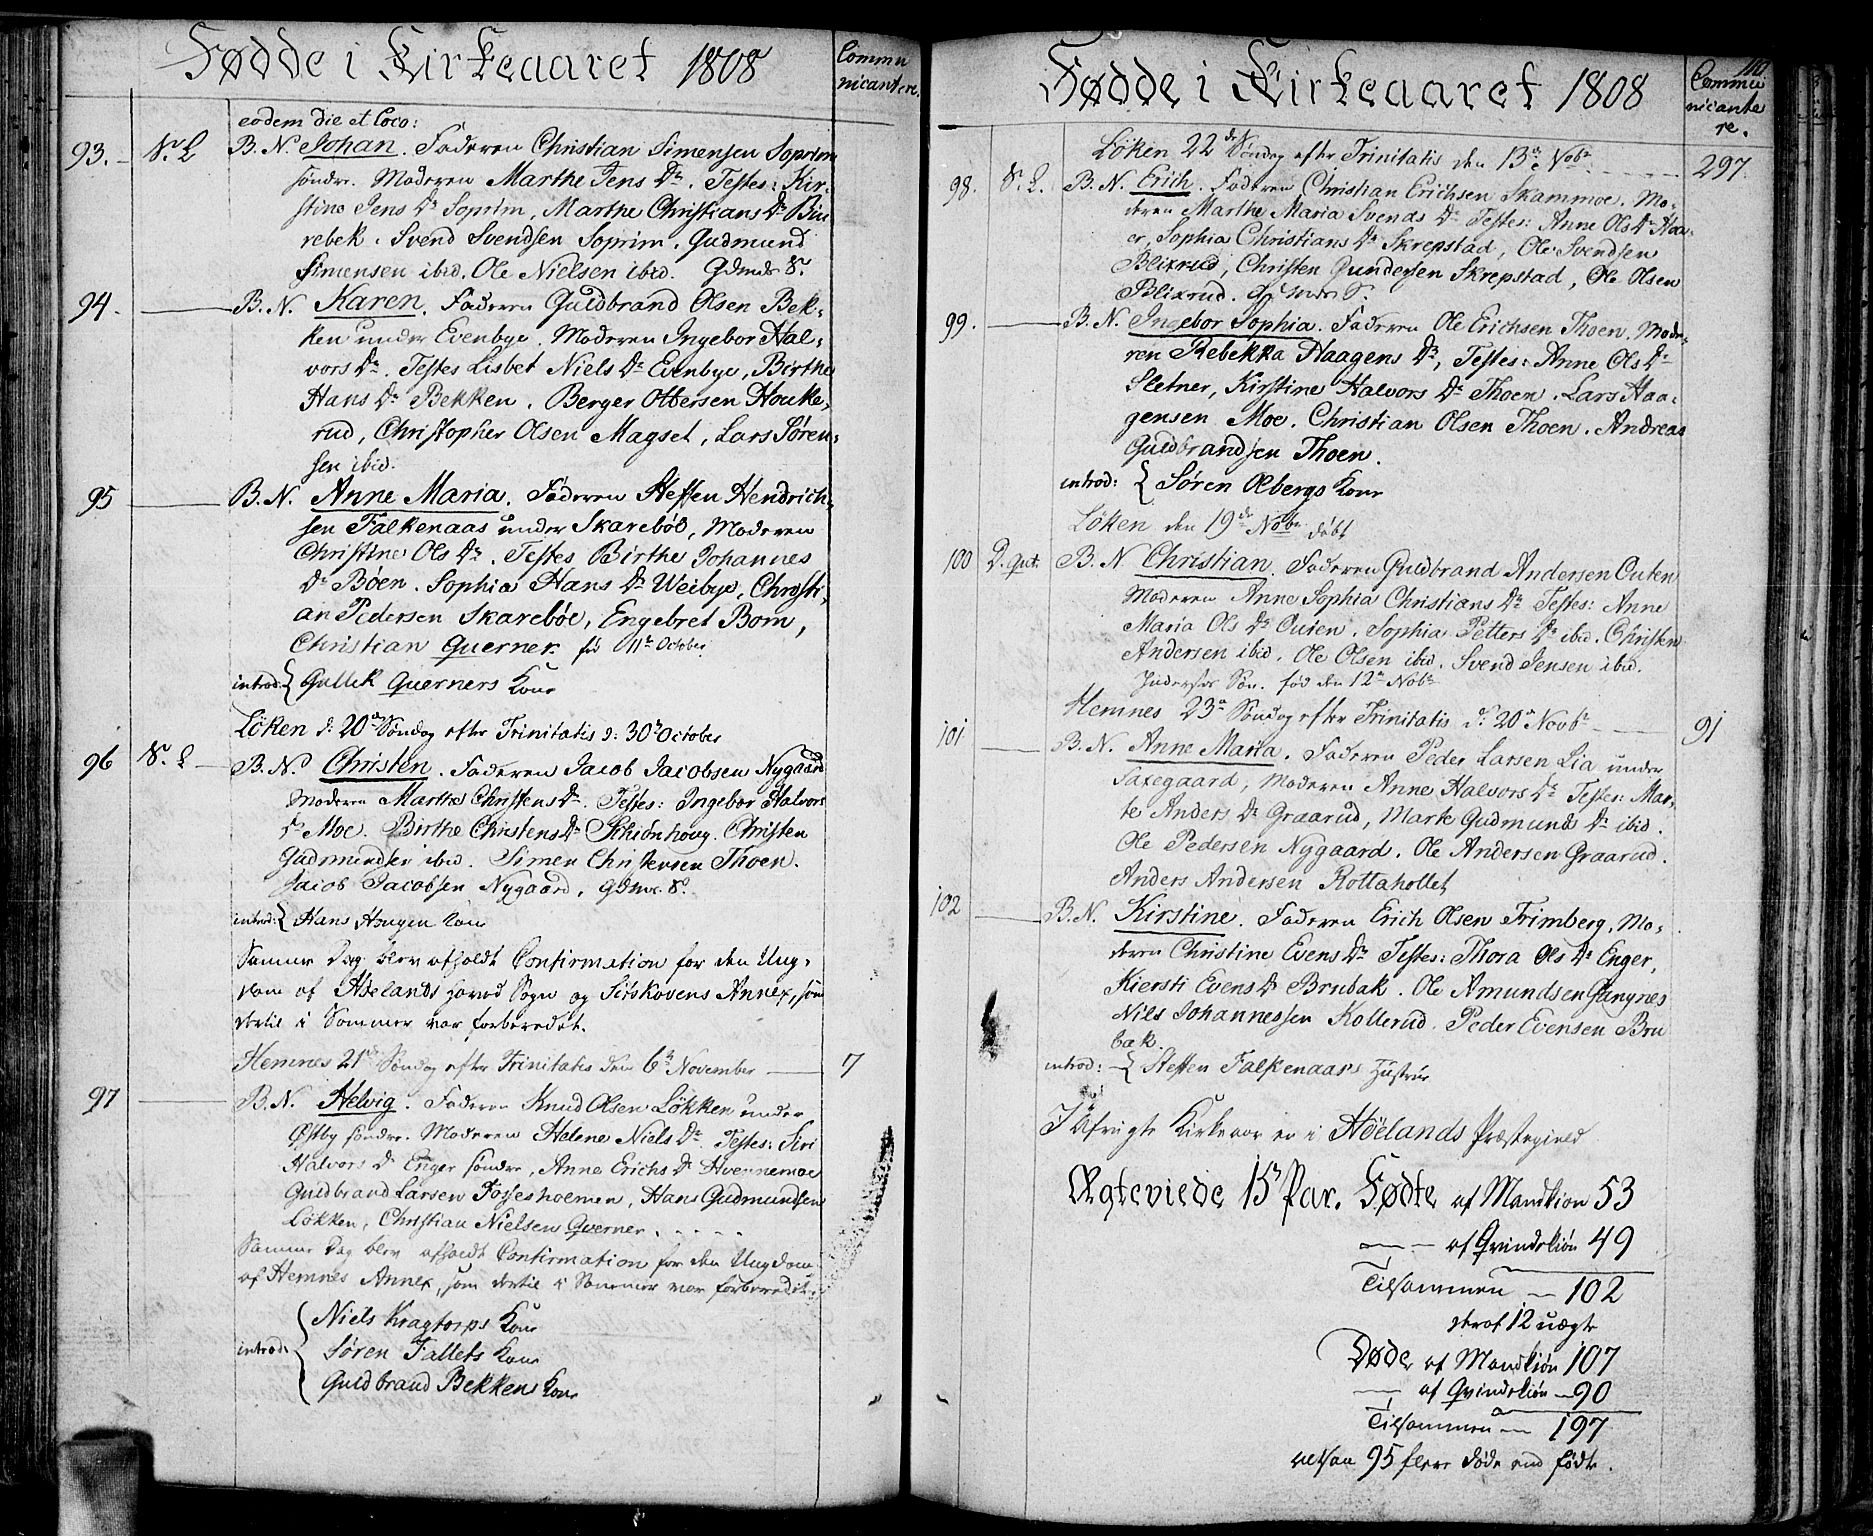 Fødde i Kirkeaaret 1808
Commu
nicantere.
eodem die et Loco:
93. S. L B. N. Johan. Faderen Christian Simensen Soprim
søndre. Moderen Marthe Jens Dr. Testes: Kir-
stine Jens Dr Soprim, Marthe Christians Dr Biu
rebek. Svend Svendsen Soprim. Gudmund
Simensen ibid. Ole Nielsen ibid.
94. B. N. Karen. Faderen Guldbrand Olsen Bek-
ken under Evenbye. Moderen Ingebor Hal-
vors Dr. Testes Lisbet Niels Dr Evenbye, Birthe
Hans Dr Bekken. Berger Ottersen Houke-
rud, Christopher Olsen Magset, Lars Søren-
sen ibid.
95 B. N. Anne Maria. Faderen Steffen Hendrich-
sen Falkenaas under Skarebøe, Moderen
Christine Ols Dr. Testes Birthe Johannes
Dr Bøen. Sophia Hans Dr Weibye, Christi-
an Pedersen Skarebøe, Engebret Born,
Christian Querner. fød 11te October
introd: { Gullek Querners Kone
Løken d: 20de Søndag efter Trinitatis d: 30te October
96 S. L B. N. Christen. Faderen Jacob Jacobsen Nygaard
Moderen Marthe Christens Dr. Testes: Ingebor Halvors
Dr Moe. Birthe Christens Dr Schiønhoug. Christen
Gudmundsen ibid. Simen Christensen Thoen.
Jacob Jacobsen Nygaard.
introd: { Hans Haugen Kone
Samme Dag blev afholdt Confirmation for den Ung-
dom af Høelands Hoved Sogn og Sitskovens Annex, som
dertil i Sommer var forberedet.
Hemnes 21de Søndag efter Trinitatis den 6te November 7
97 B. N. Helvig. Faderen Knud Olsen Løkken under
Østby søndre. Moderen Helene Niels Dr. Testes: Siri
Halvors Dr Enger søndre, Anne Erichs Dr Hvennemoe
Guldbrand Larsen Fosseshoemen, Hans Gudmundsen
Løkken, Christian Nielsen Querner.
Samme Dag blev afholdt Confirmation for den Ungdom
af Hemnes Annex, som dertil i Sommer var forberedet.
introd: { Niels Kragtorps Kone
Søren Fallets Kone
Guldbrand Bekkens Kone
Fødde i Kirkeaaret 1808
Commu
nicante
re.
Løken 22de Søndag efter Trinitatis den 13de Nobr 297.
98. S. L. B. N. Erich. Faderen Christian Erichsen Skammoe. Mo-
deren Marthe Maria Svends Dr Testes: Anne Ols Dr Haa-
er, Sophia Christians Dr Skrepstad, Ole Svendsen
Blixrud, Christen Gundersen Skrepstad, Ole Olsen
Blixrud.
99. B. N. Ingebor Sophia. Faderen Ole Erichsen Thoen. Mode-
ren Rebekka Haagens Dr, Testes: Anne Ols Dr
Sletner, Kirstine Halvors Dr Thoen. Lars Haa-
gensen Moe. Christian Olsen Thoen. Andreas
Guldbrandsen Thoen.
introd: { Søren Olbergs Kone
Løken den 19de Nobr døbt
100 B. N Christian. Faderen Guldbrand Andersen Outen
Moderen Anne Sophia Christians Dr Testes: Anne
Maria Ols Dr Outen. Sophia Petters Dr ibid. Christen
Andersen ibid. Ole Olsen ibid. Svend Jensen ibid.
fød den 12te Nobr
Hemnes 23de Søndag efter Trinitatis d: 20de Novbr 91
101 B. N. Anne Maria. Faderen Peder Larsen Lia under
Saxegaard, Moderen Anne Halvors Dr Testes: Mar-
te Anders Dr Graarud, Marte Gudmunds Dr ibid.
Ole Pedersen Nygaard. Ole Andersen Graarud.
Anders Andersen Rottahollet
102 B. N. Kirstine. Faderen Erich Olsen Trimberg, Mo-
deren Christine Evens Dr Testes: Thora Ols Dr Enger,
Kiersti Evens Dr Brubak. Ole Amundsen Gangnes
Nils Johannessen Kollerud. Peder Evensen Bru
bæk.
introd: { Steffen Falkenaas Hustrue
I Afvigte Kirkeaar er i Høelands Præstegield
Ægteviede 15 Par. Fødte af Mandkiøn 53
af Qvindekiøn 49
Tilsammen 102
deraf 12 uægte
Døde af Mandkiøn 107
af Qvindekiøn 90
Tilsammen 197
altsaa 95 flere døde end fødte.